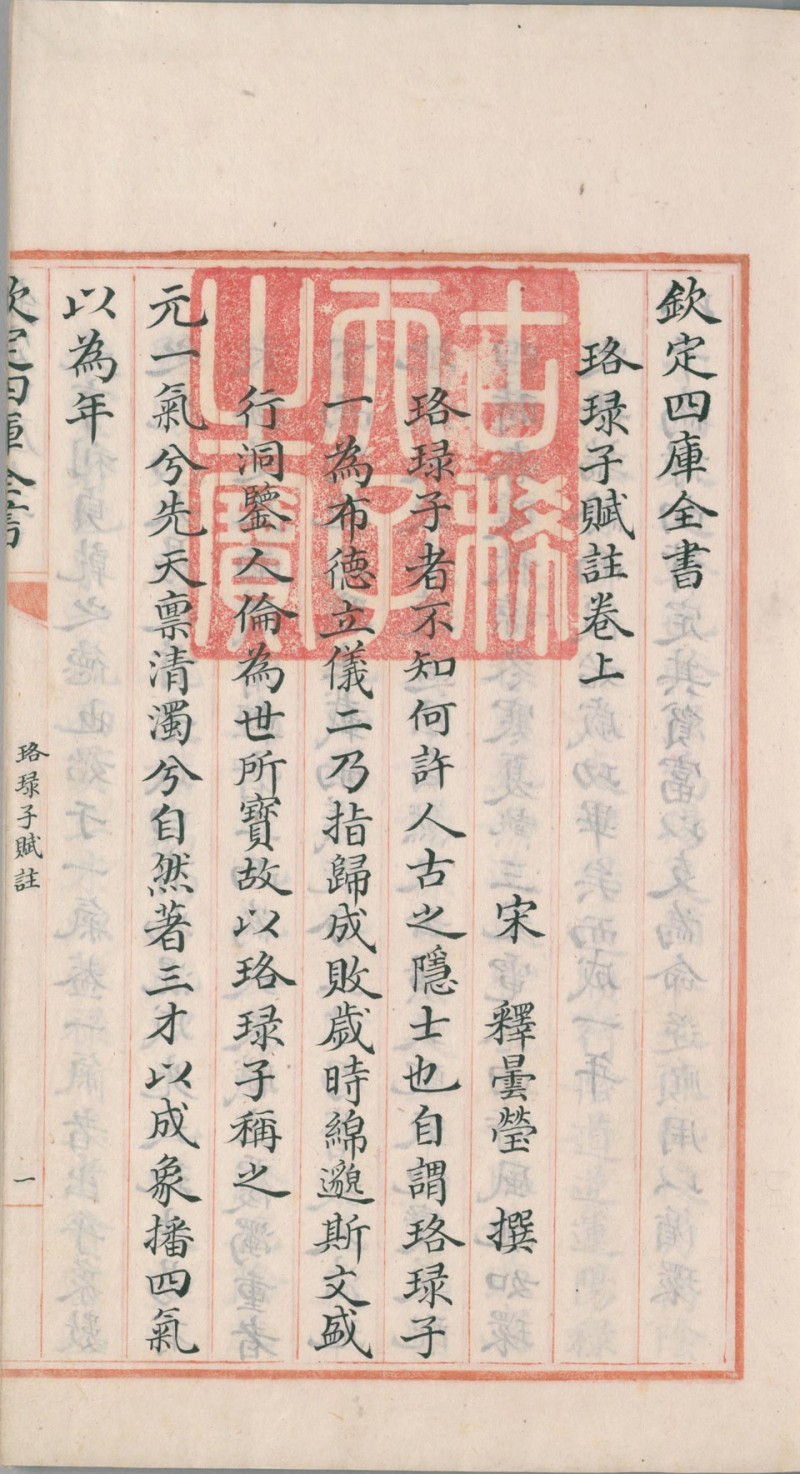 欽定四庫全書
珞琭子賦註卷上
宋 釋曇瑩 撰
珞琭子者不知何許人古之隱士也自謂珞琭子
一為布德立儀二乃指歸成敗歲時綿邈斯文盛
行洞鑒人倫為世所寶故以珞琭子稱之
元一氣兮先天禀清濁兮自然著三才以成象播四氣
以為年
欽定四庫全書
珞琭子賦註
一
古稀天子之寶